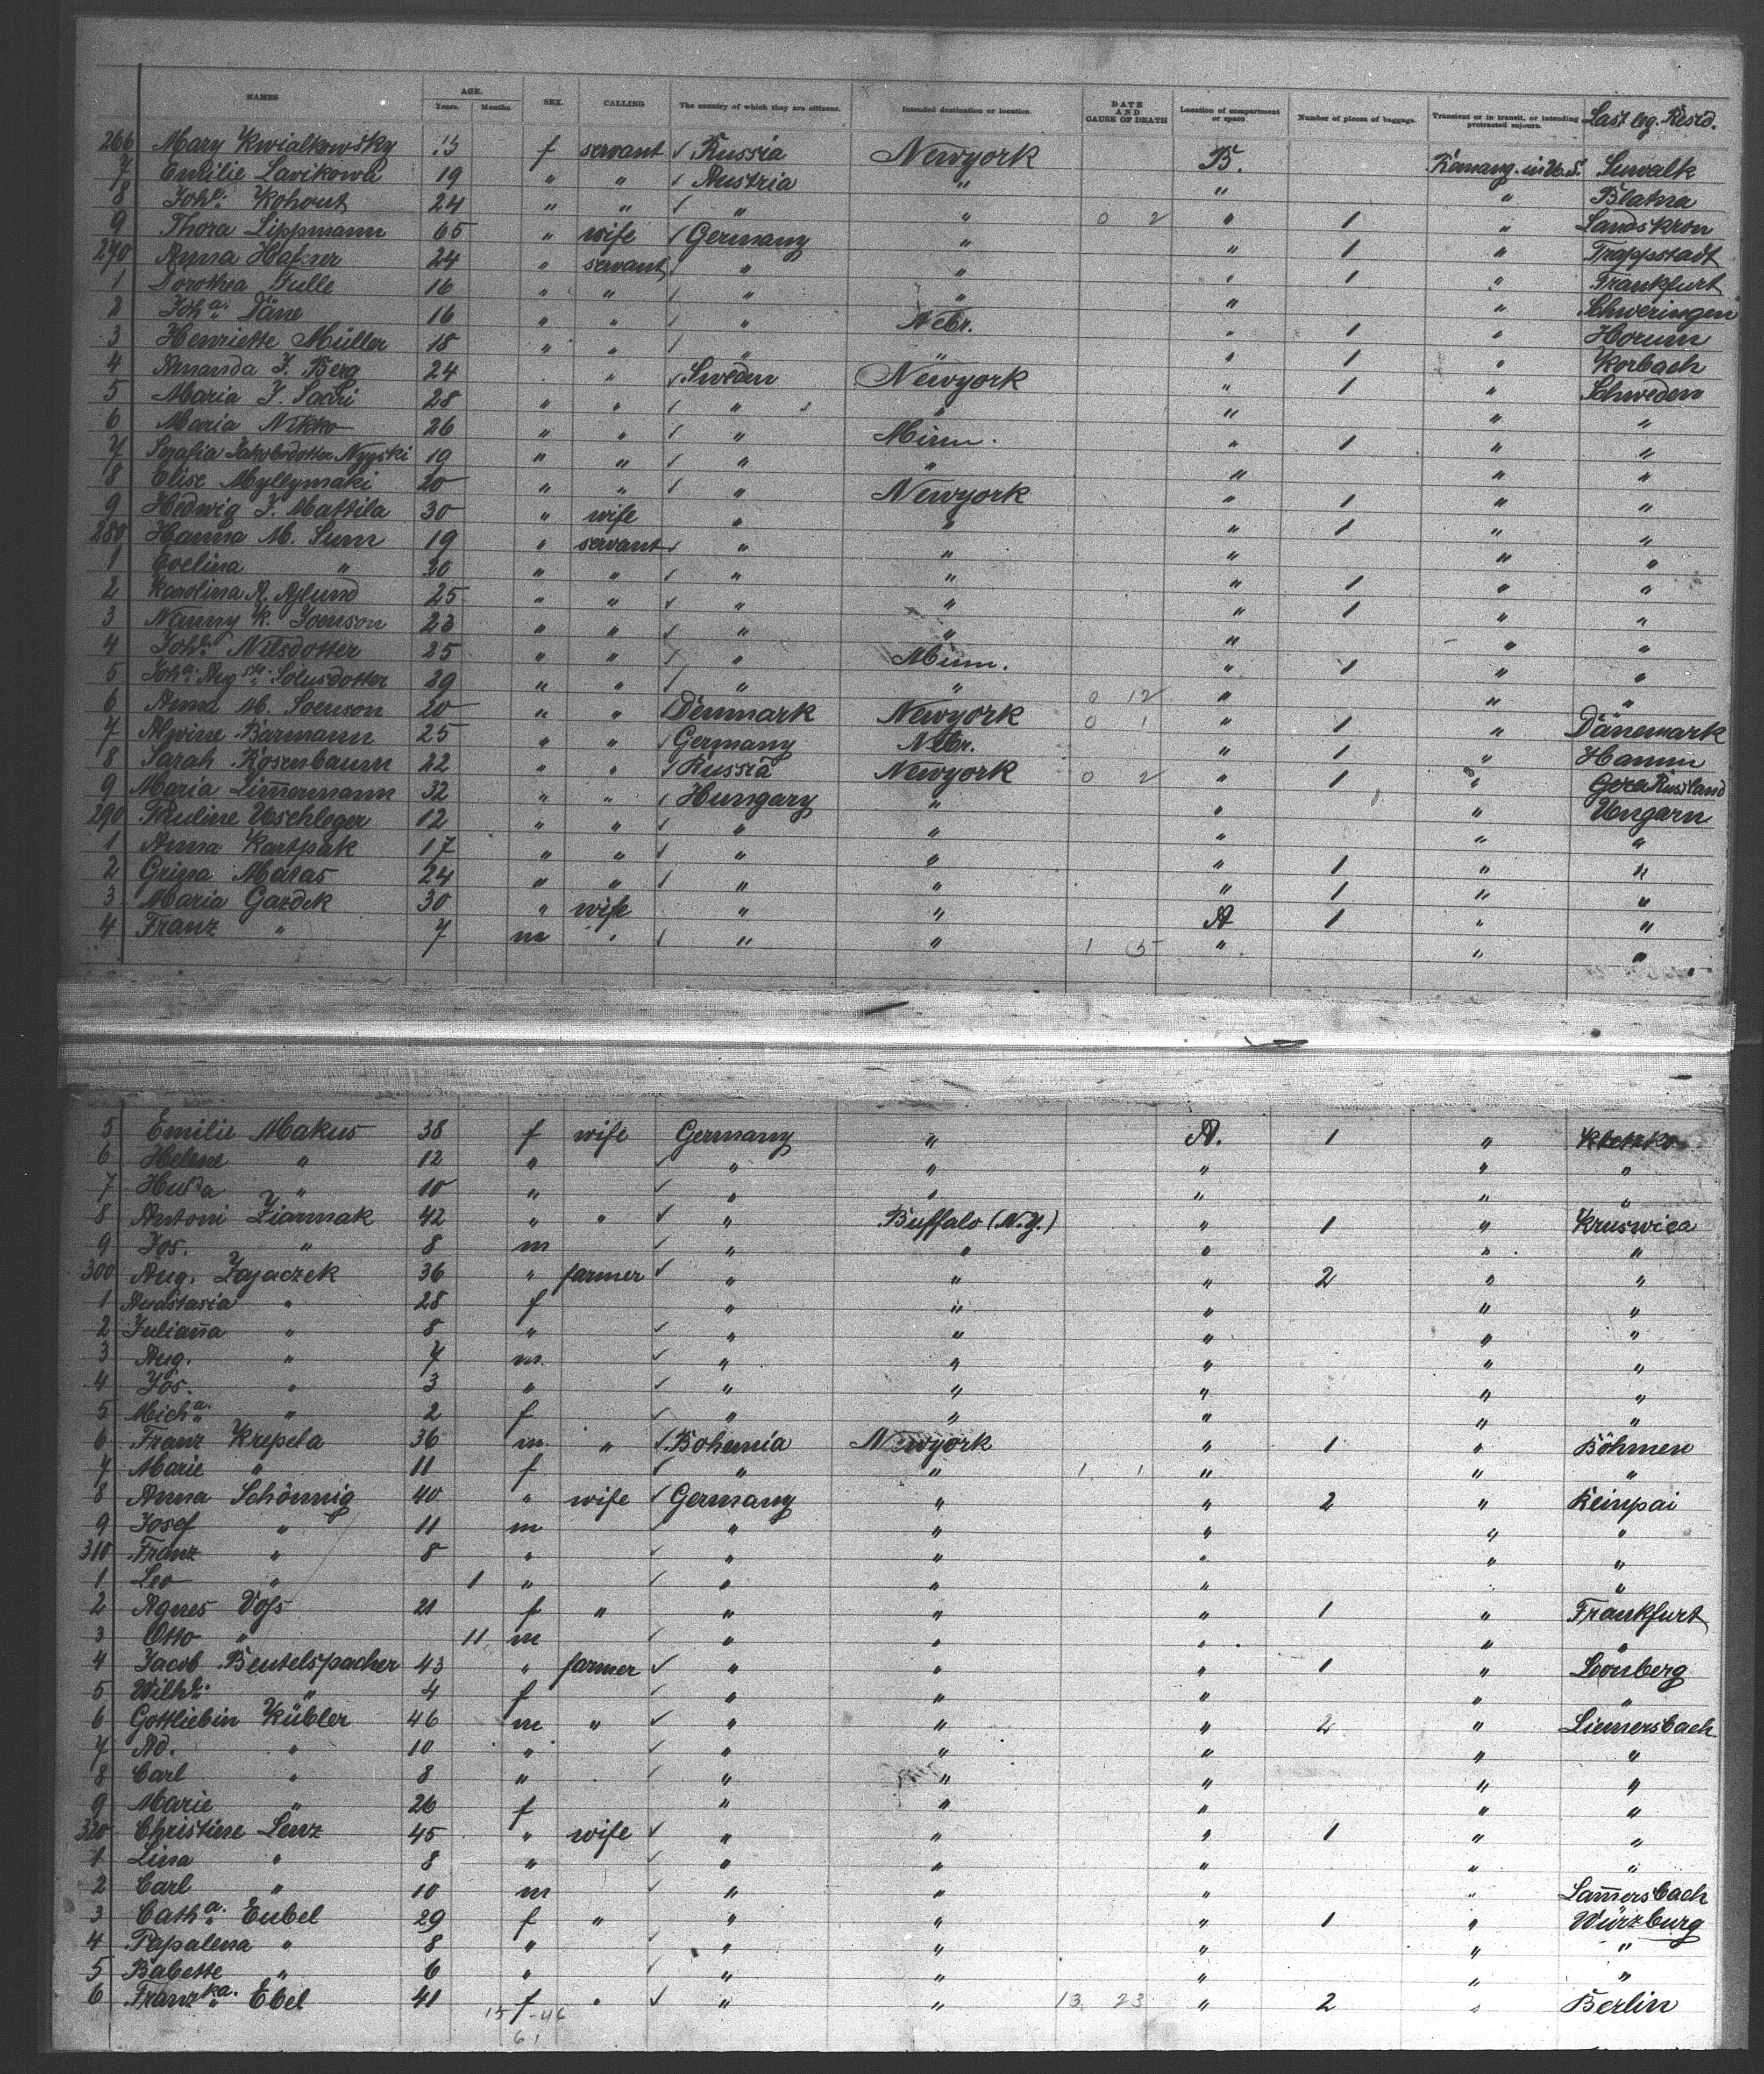 NAMES AGE. Years. Months. SEX. CALLING The country of which they are citizens. Intended destination or location. DATE AND CAUSE OF DEATH Location of compartment or space Number of pieces of baggage. Transient or in transit, or intending protracted sojourn. Last leg. Resid.
266 Mary Kwialkowsky f servant Russia Newyork B. Suwalk
7 Emilie Lavikowa 19 " " Austria " " " Blatna
8 Kohout 24 " " " " 0 2 " 1 " Landskron
9 Thora Lippmann 65 " wife Germany " " 1 " Trappstadt
270 Anna Hafner 24 " servant " " " 1 " Frankfurt
1 Dorothea Fulle 16 " " " " " " Schweringen
2 Joha. Däne 16 " " " Nebr. " 1 " Horum
3 Henriette Müller 18 " " " " " 1 " Korbach
4 Amanda J. Berg 24 " Sweden Newyork " 1 " Schweden
5 Maria J. Saari 28 " " " " " " "
6 Maria Nikko 26 " " " Minn. " 1 " "
7 Serafia Jakobsdotter Nygski 19 " " " " " " "
8 Elise Myllymaki 20 " " " Newyork " 1 " "
9 Hedwig J. Mattila 30 " wife " " " 1 " "
280 Hanna M. Sum 19 " servant " " " " "
1 Evelina " 20 " " " " " 1 " "
2 Karolina A. Aslund 25 " " " " " 1 " "
3 Nanny K. Joenson 23 " " " " " " "
4 Nilsdotter 25 " " " Minn. " 1 " "
5 Joha. Solusdotter 29 " " " " 0 12 " " "
6 Anna M. Soenson 20 " " Denmark Newyork 0 1 " 1 " Dänemark
7 Alwine Barmann 25 " " Germany Nebr. " 1 " Hamm
8 Sarah Rosenbaum 22 " " Russia Newyork 0 2 " 1 " Russland
9 Maria Zim̄ermann 32 " " Hungary " " " Ungarn
290 Pauline Uschleger 12 " " " " " " "
1 Anna Kartpak 17 " " " " " 1 " "
2 Grina Matas 24 " " " " " 1 " "
3 Maria Gazdek 30 " wife " " A 1 " "
4 Franz " 7 m " " " 1 5 " " "
5 Emilie Makus 38 f wife Germany " A. 1 " Kletzko
6 Helene " 12 " " " " " "
7 Hulda " 10 " " " " " "
8 Antoni Ziarnak 42 " " " Buffalo (N.Y.) " 1 " Kruswica
9 Jos. " 8 m " " " " "
300 Aug. Zajaczek 36 " farmer " " " 2 " "
1 Anastasia " 28 f " " " " "
2 Juliana " 8 " " " " " "
3 Aug. " 7 m " " " " "
4 Jos. " 3 " " " " " "
5 Micha. " 2 f " " " " "
6 Franz Krepela 36 m " Bohemia Newyork " 1 " Böhmen
7 Marie " 11 f " " 1 1 " " "
8 Anna Schönnig 40 " wife Germany " " 2 " Reinpai
9 Josef " 11 m " " " " "
310 Franz " 8 " " " " " "
1 Leo " 1 " " " " " "
2 Agnes Voss 21 f " " " " 1 " Frankfurt
3 Otto " 11 m " " " " "
4 Jacob Beutelspacher 43 " farmer " " " 1 " Loonberg
5 Wilhe. " 4 f " " " " "
6 Gottliebin Kübler 46 m " " " " 2 " Liemersbach
7 Ad. " 10 " " " " " "
8 Carl " 8 " " " " " "
9 Marie " 26 f " " " " "
320 Christine Lenz 45 " wife " " " 1 " "
1 Lina " 8 " " " " " "
2 Carl " 10 m " " " " Lam̄ersbach
3 Catha. Eubel 29 f " " " " 1 " Würzburg
4 Papalena " 8 " " " " " "
5 Babette " 6 " " " " " "
6 Franzka. Ebel 41 f " " " 13 23 " 2 " Berlin
15 46
61